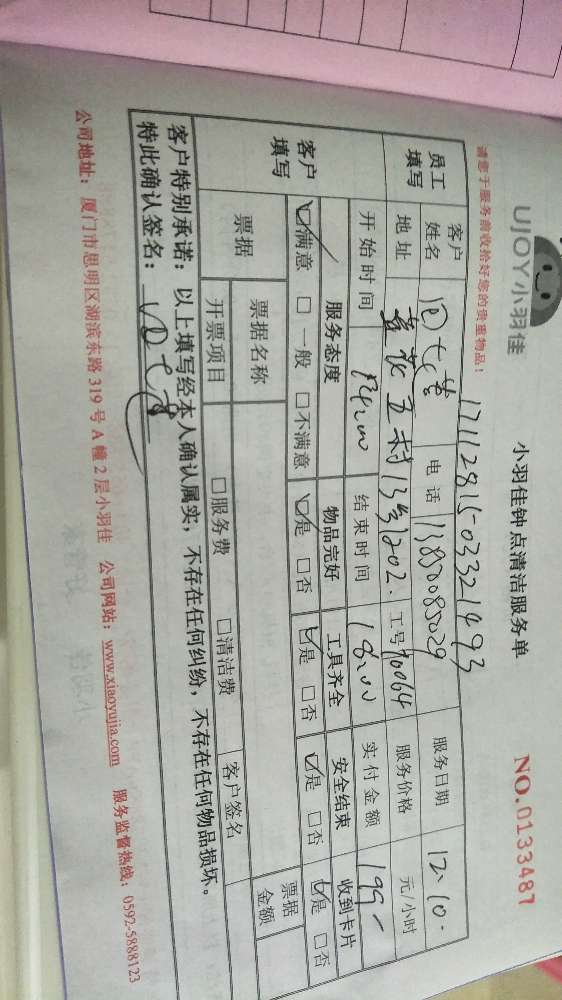 UJOY小羽佳
小羽佳钟点清洁服务单
NO.0133487
请您于服务前收拾好您的贵重物品!
17112815033221493
员工填写
客户姓名
电话 13850083029
服务日期 12.10.
地址 莲花五村13号202.
工号 90064
服务价格 元/小时
开始时间 14:00
结束时间 18:00
实付金额 199-
客户填写
服务态度 物品完好 工具齐全 安全结束 收到卡片
☑满意 □一般 □不满意 ☑是 □否 ☑是 □否 ☑是 □否 ☑是 □否
票据 票据名称 客户签名 票据金额
开票项目 □服务费 □清洁费
客户特别承诺:以上填写经本人确认属实,不存在任何纠纷,不存在任何物品损坏。
特此确认签名:
公司地址:厦门市思明区湖滨东路319号A幢2层小羽佳 公司网站:www.xiaoyujia.com 服务监督热线:0592-5888123